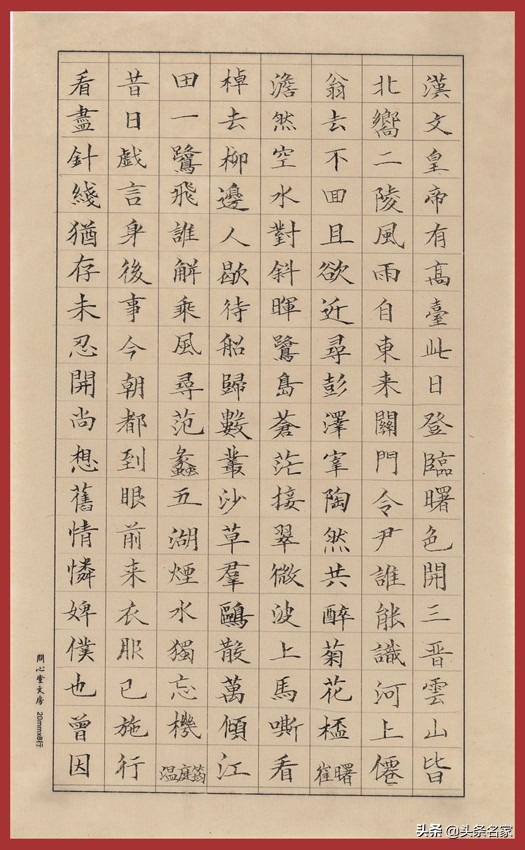 漢文皇帝有髙臺此日登臨曙色開三晋雲山皆
北嚮二陵風雨自東来關門令尹誰能識河上僊
翁去不囬且欲近尋彭澤宰陶然共醉菊花桮崔曙
澹然空水對斜暉鷺島蒼茫接翠微波上馬嘶看
棹去柳邊人歇待船歸數叢沙草羣鷗散萬傾江
田一鷺飛誰解乘風尋范蠡五湖煙水獨忘機温庭筠
昔日戲言身後事今朝都到眼前来衣服已施行
看盡針綫猶存未忍開尚想舊情憐婢僕也曾因
心堂文房 20mm
头条 @头条名家